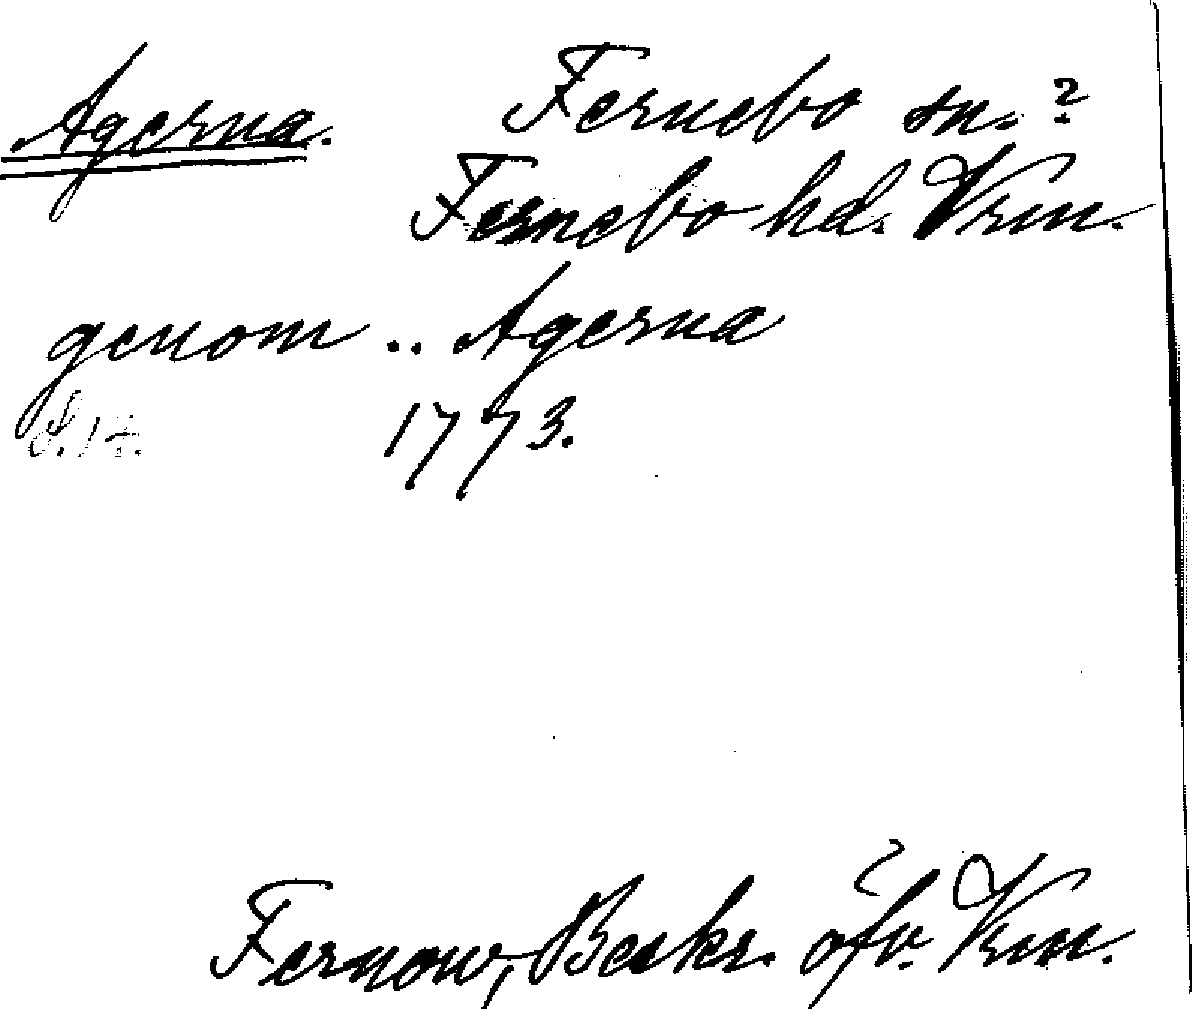 Agerna. Fernebo sn.?
Fernebo hd. Vrm.
genom .. Agerna
S. 14. 1773.
Fernow, Beskr. öfv. Vrm.